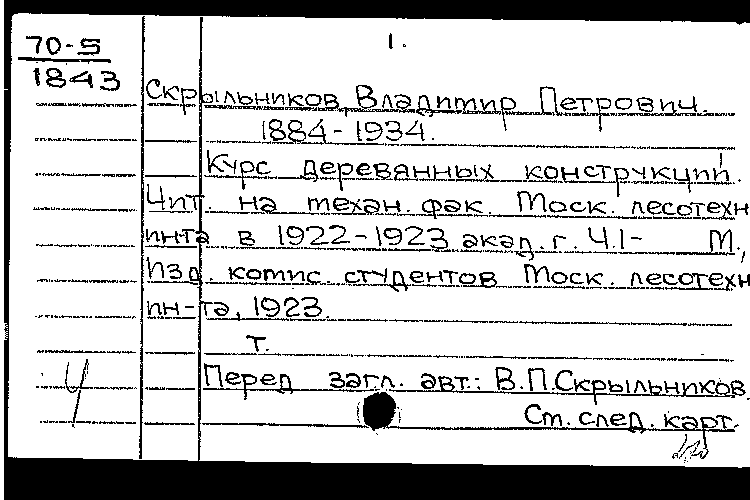 70-5
1843
1.
Скрыльников, Владимир Петрович.
1884-1934.
Курс деревянных конструкций.
Чит. на механ. фак. Моск. лесотехн
инта в 1922-1923 акад. г. Ч.1- М.,
Изд. комис. студентов Моск. лесотехн
ин-та, 1923.
т.
Перед загл. авт.: В.П.Скрыльников.
Ч
См. след. карт.